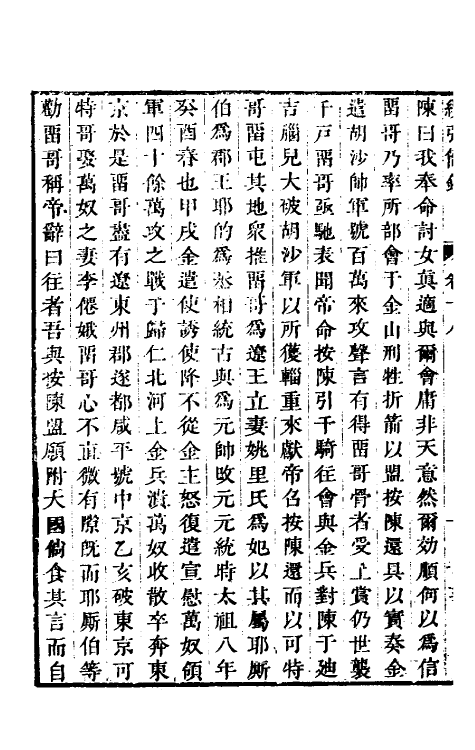 陳曰我奉命討女真適與爾會庸非天意然爾効順何以爲信
畱哥乃率所部會于金山刑牲折箭以盟按陳還具以實奏金
遣胡沙帥軍號百萬來攻聲言有得畱哥骨者受上賞仍世襲
千戸畱哥亟馳表聞帝命按陳引千騎往會與金兵對陳于廸
吉腦兒大破胡沙軍以所獲輜重來獻帝召按陳還而以可特
哥畱屯其地衆推畱哥爲遼王立妻姚里氏爲妃以其屬耶厮
伯爲郡王耶的爲丞相統古與爲元帥改元元統時太祖八年
癸酉春也甲戌金遣使誘使降不從金主怒復遣宣慰萬奴領
軍四十餘萬攻之戰于歸仁北河上金兵潰萬奴收散卒奔東
京於是畱哥盡有遼東州郡遂都咸平號中京乙亥破東京可
特哥娶萬奴之妻李僊娥畱哥心不直微有隙旣而耶厮伯等
勸畱哥稱帝辭曰往者吾與按陳盟願附大國倘食其言而自